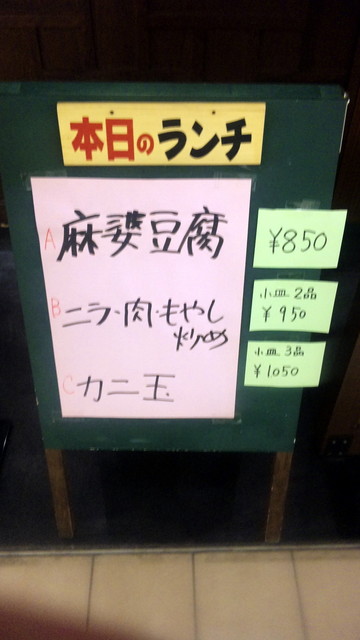 本日のランチ
A 麻婆豆腐
¥850
B ニラ・肉・もやし
炒め
小皿2品
¥950
小皿3品
¥1050
C カニ玉